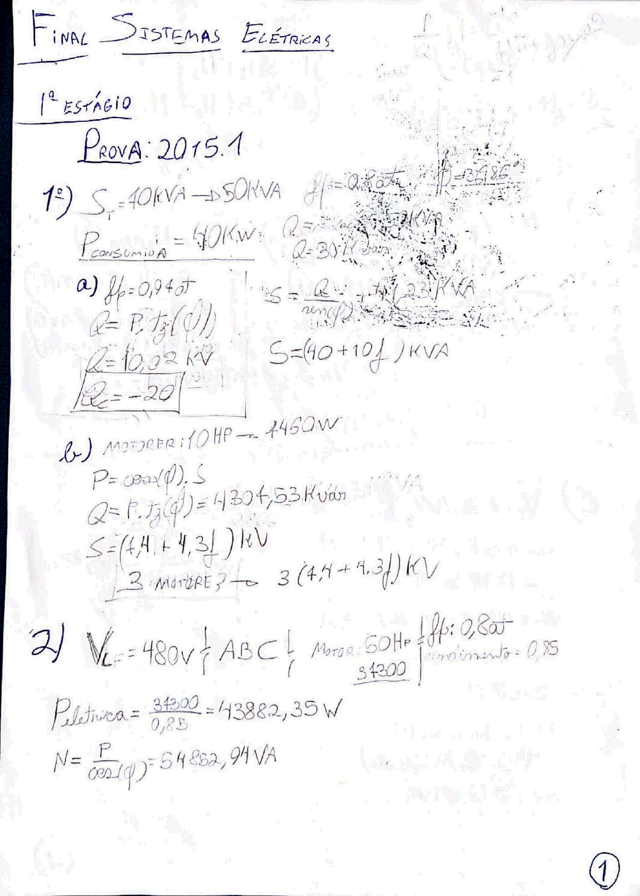 FINAL SISTEMAS ELÉTRICAS
1º ESTÁGIO
PROVA: 2015.1
1º) S = 40KVA → 50KVA
PCONSUMIDA = 40KW
Q = 30K
a) fp = 0,97at
Q = P. tg(φ)
Q = 10,02 KV
Qc = -20
S = Q / sin(φ)
S = (40 + 10j) KVA
b) MOTORER: 10HP — 7460W
P = cos(φ). S
Q = P. tg(φ) = 4304,53 Kvár
S = (7,4 + 4,3j) KV
3 MOTORE → 3 (7,4 + 4.3j) KV
2) VL = 480V ABC MOTOR: 50HP fp: 0,8at
37300 rendimento = 0,85
Peletrica = 37300 / 0,85 = 43882,35W
N = P / cos(φ) = 54852,94VA
1